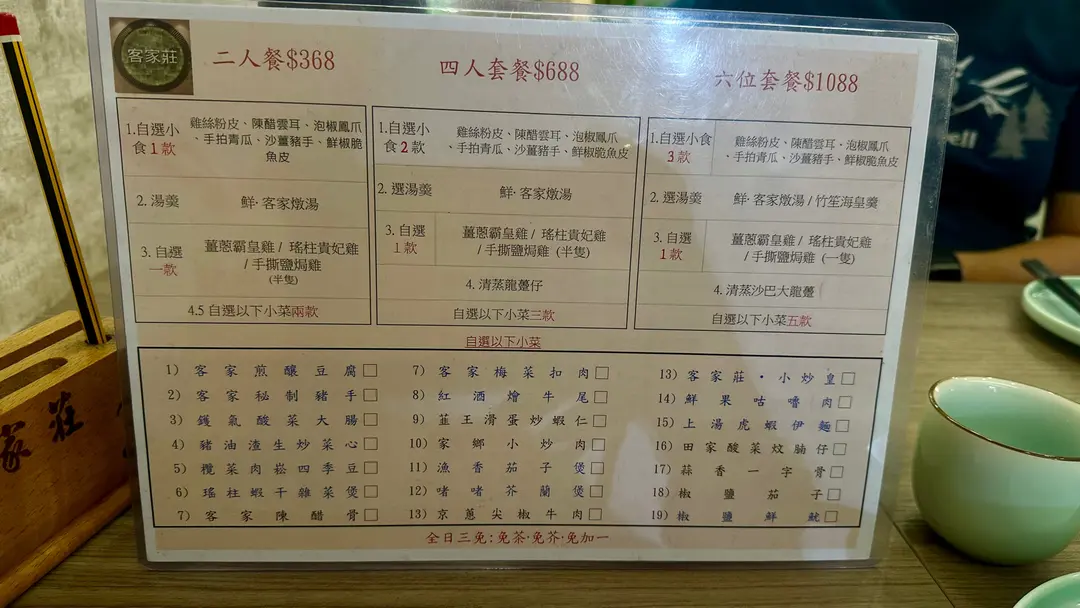 客家莊
二人餐$368
四人套餐$688
六位套餐$1088
1.自選小食1款
雞絲粉皮、陳醋雲耳、泡椒鳳爪
、手拍青瓜、沙薑豬手、鮮椒脆
魚皮
2. 湯羹
鮮·客家燉湯
3. 自選一款
薑蔥霸皇雞 / 瑤柱貴妃雞
/ 手撕鹽焗雞
(半隻)
4.5 自選以下小菜兩款
1.自選小食2款
雞絲粉皮、陳醋雲耳、泡椒鳳爪
、手拍青瓜、沙薑豬手、鮮椒脆魚皮
2. 選湯羹
鮮·客家燉湯
3. 自選1款
薑蔥霸皇雞 / 瑤柱貴妃雞
/ 手撕鹽焗雞 (半隻)
4. 清蒸龍躉仔
自選以下小菜三款
1.自選小食3款
雞絲粉皮、陳醋雲耳、泡椒鳳爪
、手拍青瓜、沙薑豬手、鮮椒脆魚皮
2. 選湯羹
鮮·客家燉湯 / 竹笙海皇羹
3. 自選1款
薑蔥霸皇雞 / 瑤柱貴妃雞
/ 手撕鹽焗雞 (一隻)
4. 清蒸沙巴大龍躉
自選以下小菜五款
自選以下小菜
1) 客家煎釀豆腐
2) 客家秘制豬手
3) 鑊氣酸菜大腸
4) 豬油渣生炒菜心
5) 欖菜肉崧四季豆
6) 瑤柱蝦干雜菜煲
7) 客家陳醋骨
7) 客家梅菜扣肉
8) 紅酒燴牛尾
9) 韮王滑蛋炒蝦仁
10) 家鄉小炒肉
11) 漁香茄子煲
12) 啫啫芥蘭煲
13) 京蔥尖椒牛肉
13) 客家莊·小炒皇
14) 鮮果咕嚕肉
15) 上湯虎蝦伊麵
16) 田家酸菜炆腩仔
17) 蒜香一字骨
18) 椒鹽茄子
19) 椒鹽鮮魷
全日三免:免茶·免芥·免加一
家莊
ell